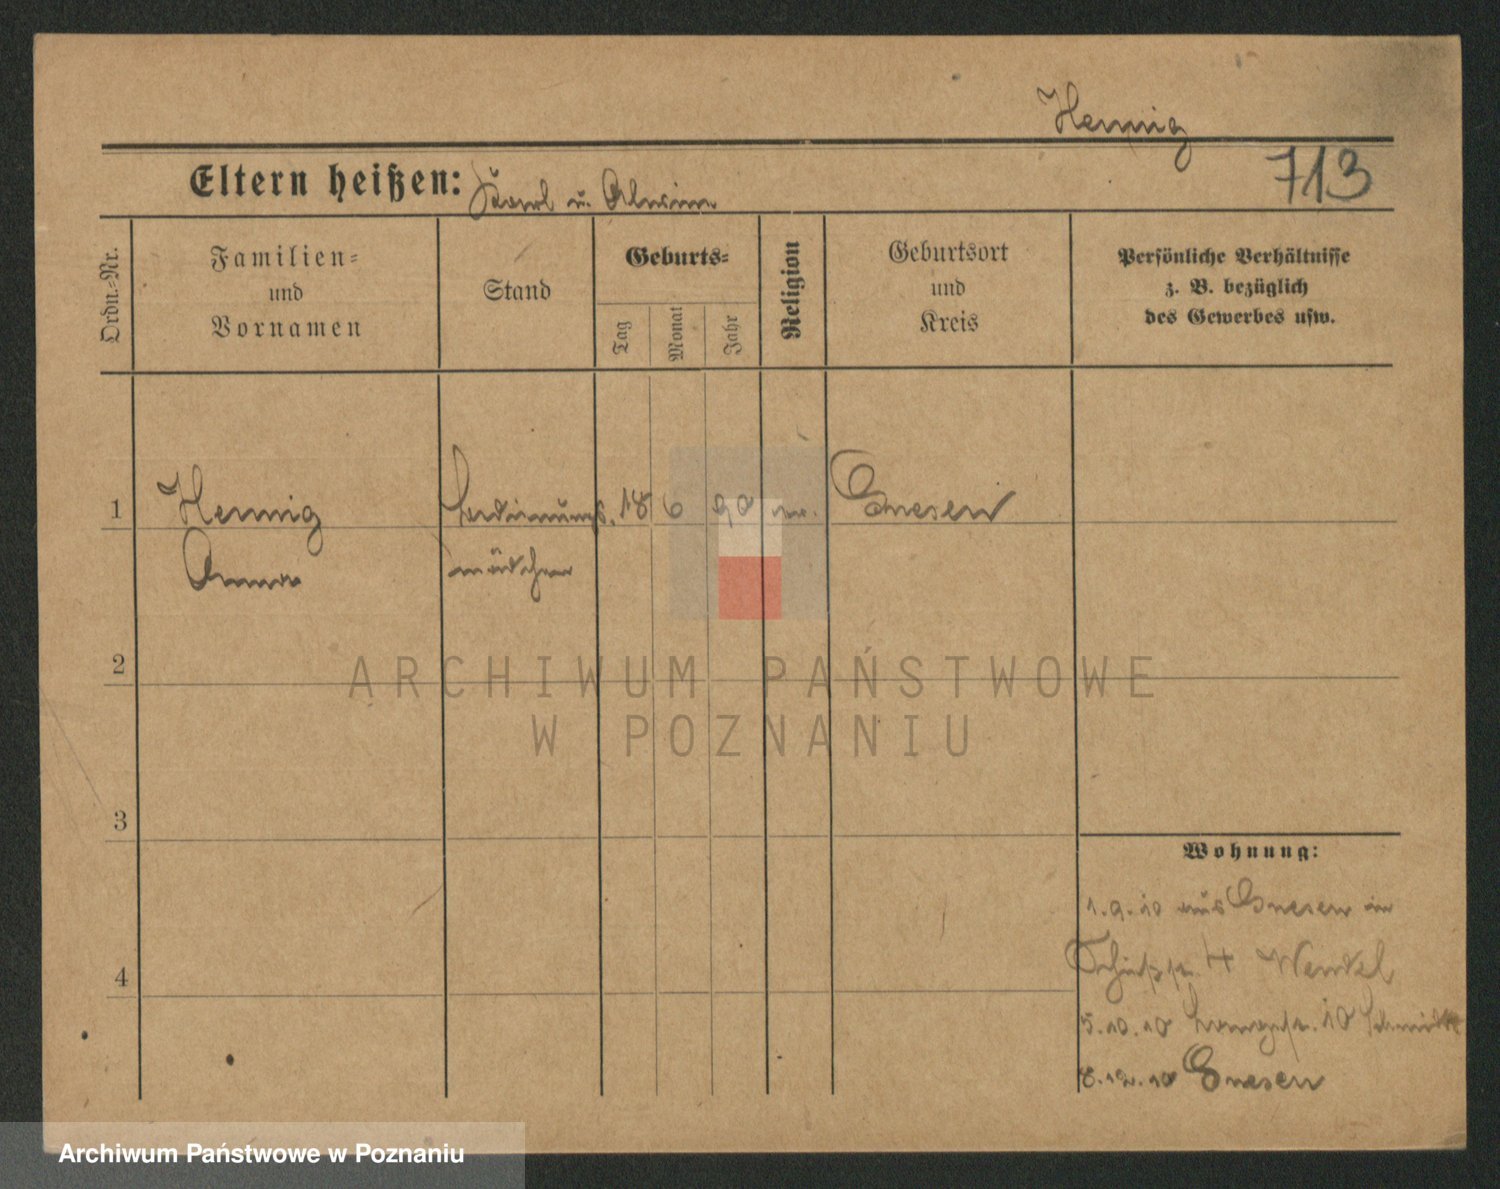 Hennig
713
Eltern heißen: Karl u. Alwine
Ordn.-Nr.
Familien-
und
Vornamen
Stand
Geburts-
Tag
Monat
Jahr
Religion
Geburtsort
und
Kreis
Persönliche Verhältnisse
z. B. bezüglich
des Gewerbes usw.
1 Hennig Bedienungs. 18 6 90 ev. Gnesen
Anna mädchen
2
3
4
Wohnung:
1.9.10 aus Gnesen in
Schießstr. 4 Wendel
5.10.10 Langestr. 10 Schmidt
8.12.10 Gnesen
ARCHIWUM PAŃSTWOWE
W POZNANIU
Archiwum Państwowe w Poznaniu